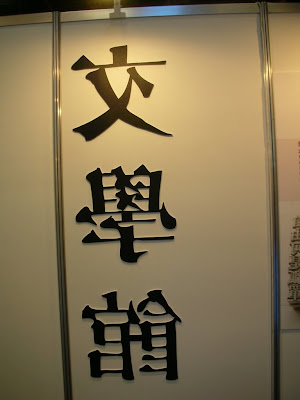 文學館